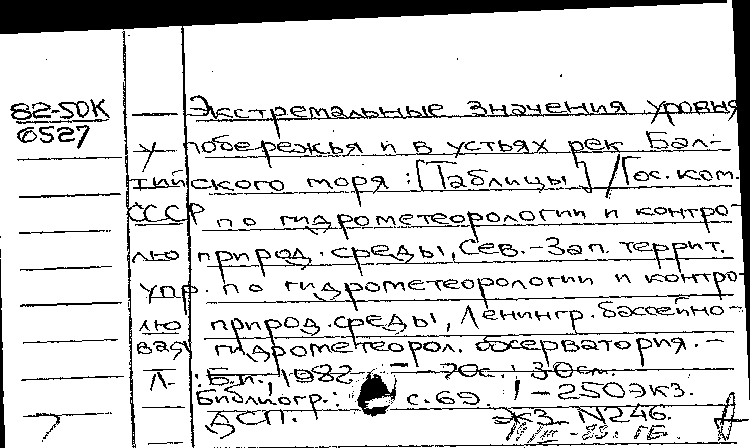 82-50К
6527
Экстремальные значения уровня
у побережья и в устьях рек Бал-
тийского моря : [Таблицы] / Гос. ком.
СССР по гидрометеорологии и контро-
лю природ. среды, Сев.-Зап. террит.
упр. по гидрометеорологии и контро-
лю природ. среды, Ленингр. бассейно-
вая гидрометеорол. обсерватория. -
Л. : Б.и., 1982. - 70с. ; 30см.
Библиогр.: с.69. ! - 250экз.
ДСП. Экз. N246.